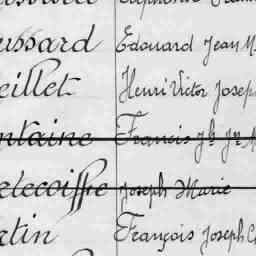 ussard Edouard Jean M
eillet Henri Victor Josep
ntaine Francis Jh Jn
etecoiffe Joseph Marie
rtin François Joseph C